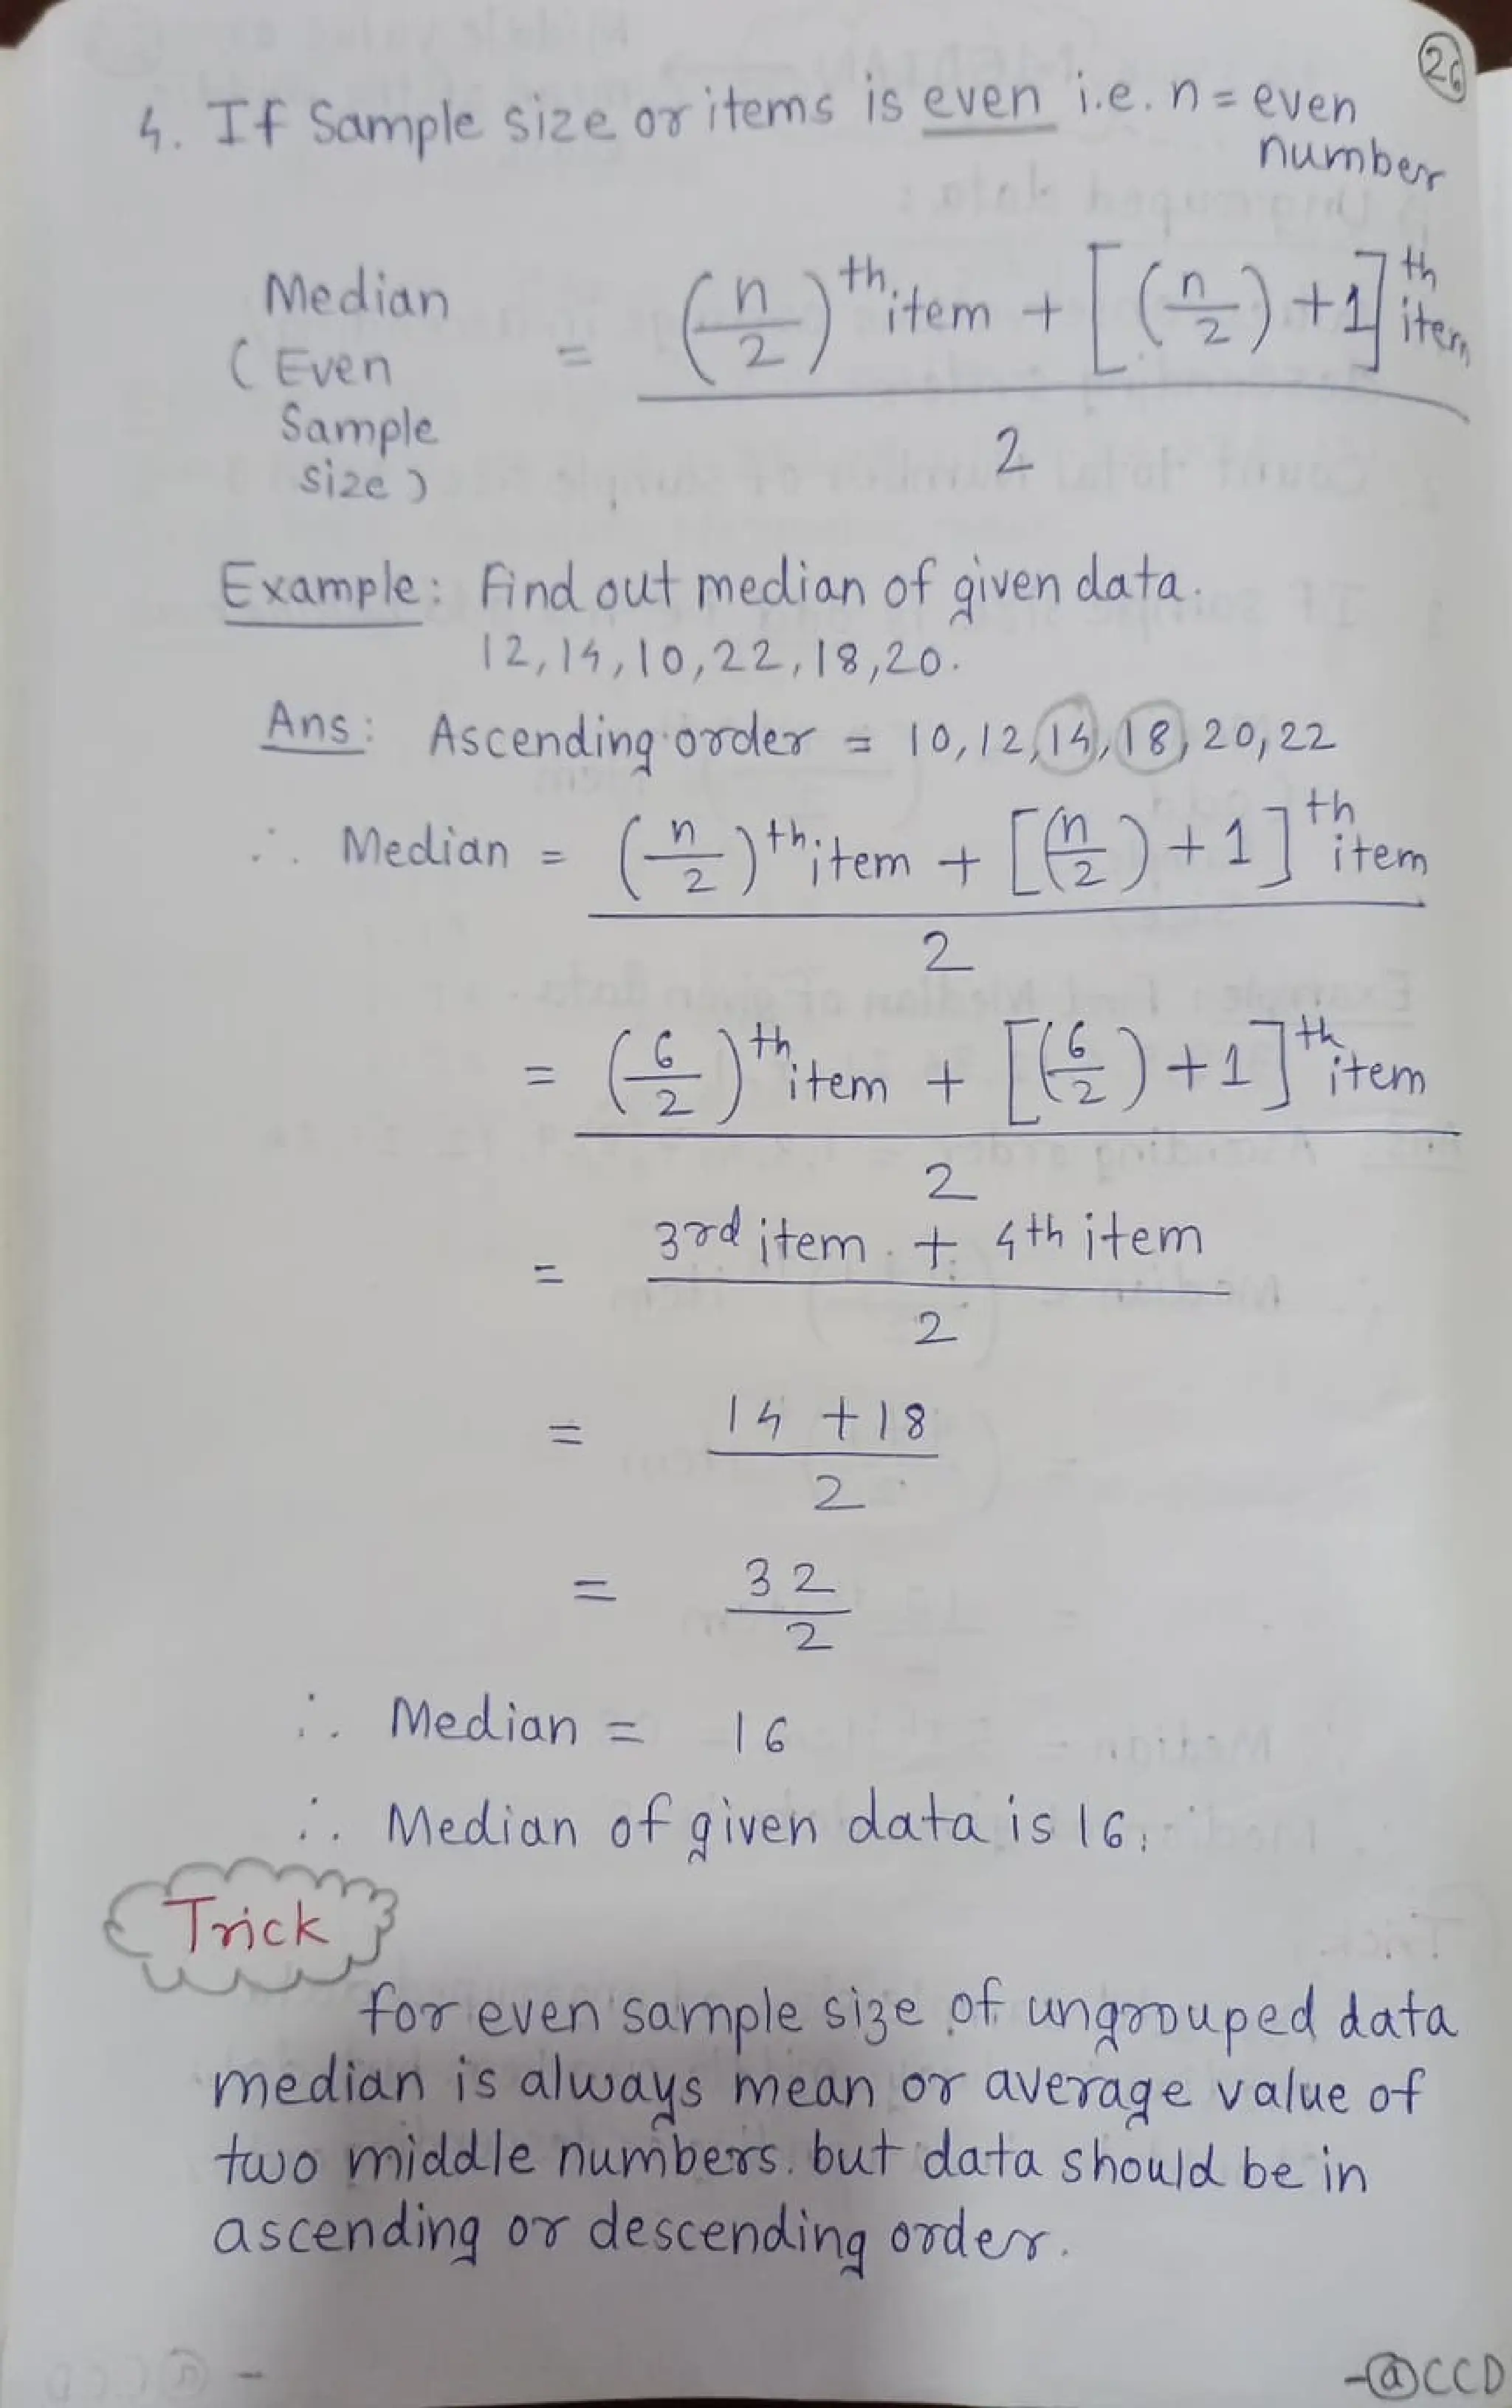 26
4. If Sample size or items is even i.e. n = even
number
Median
(Even
Sample
size)
= (n/2)th item + [(n/2) + 1]th item
2
Example: Find out median of given data.
12, 14, 10, 22, 18, 20.
Ans: Ascending order = 10, 12, 14, 18, 20, 22
∴ Median = (n/2)th item + [(n/2) + 1]th item
2
= (6/2)th item + [(6/2) + 1]th item
2
= 3rd item + 4th item
2
= 14 + 18
2
= 32
2
∴ Median = 16
∴ Median of given data is 16.
Trick
for even sample size of ungrouped data
median is always mean or average value of
two middle numbers. but data should be in
ascending or descending order.
-@CCD